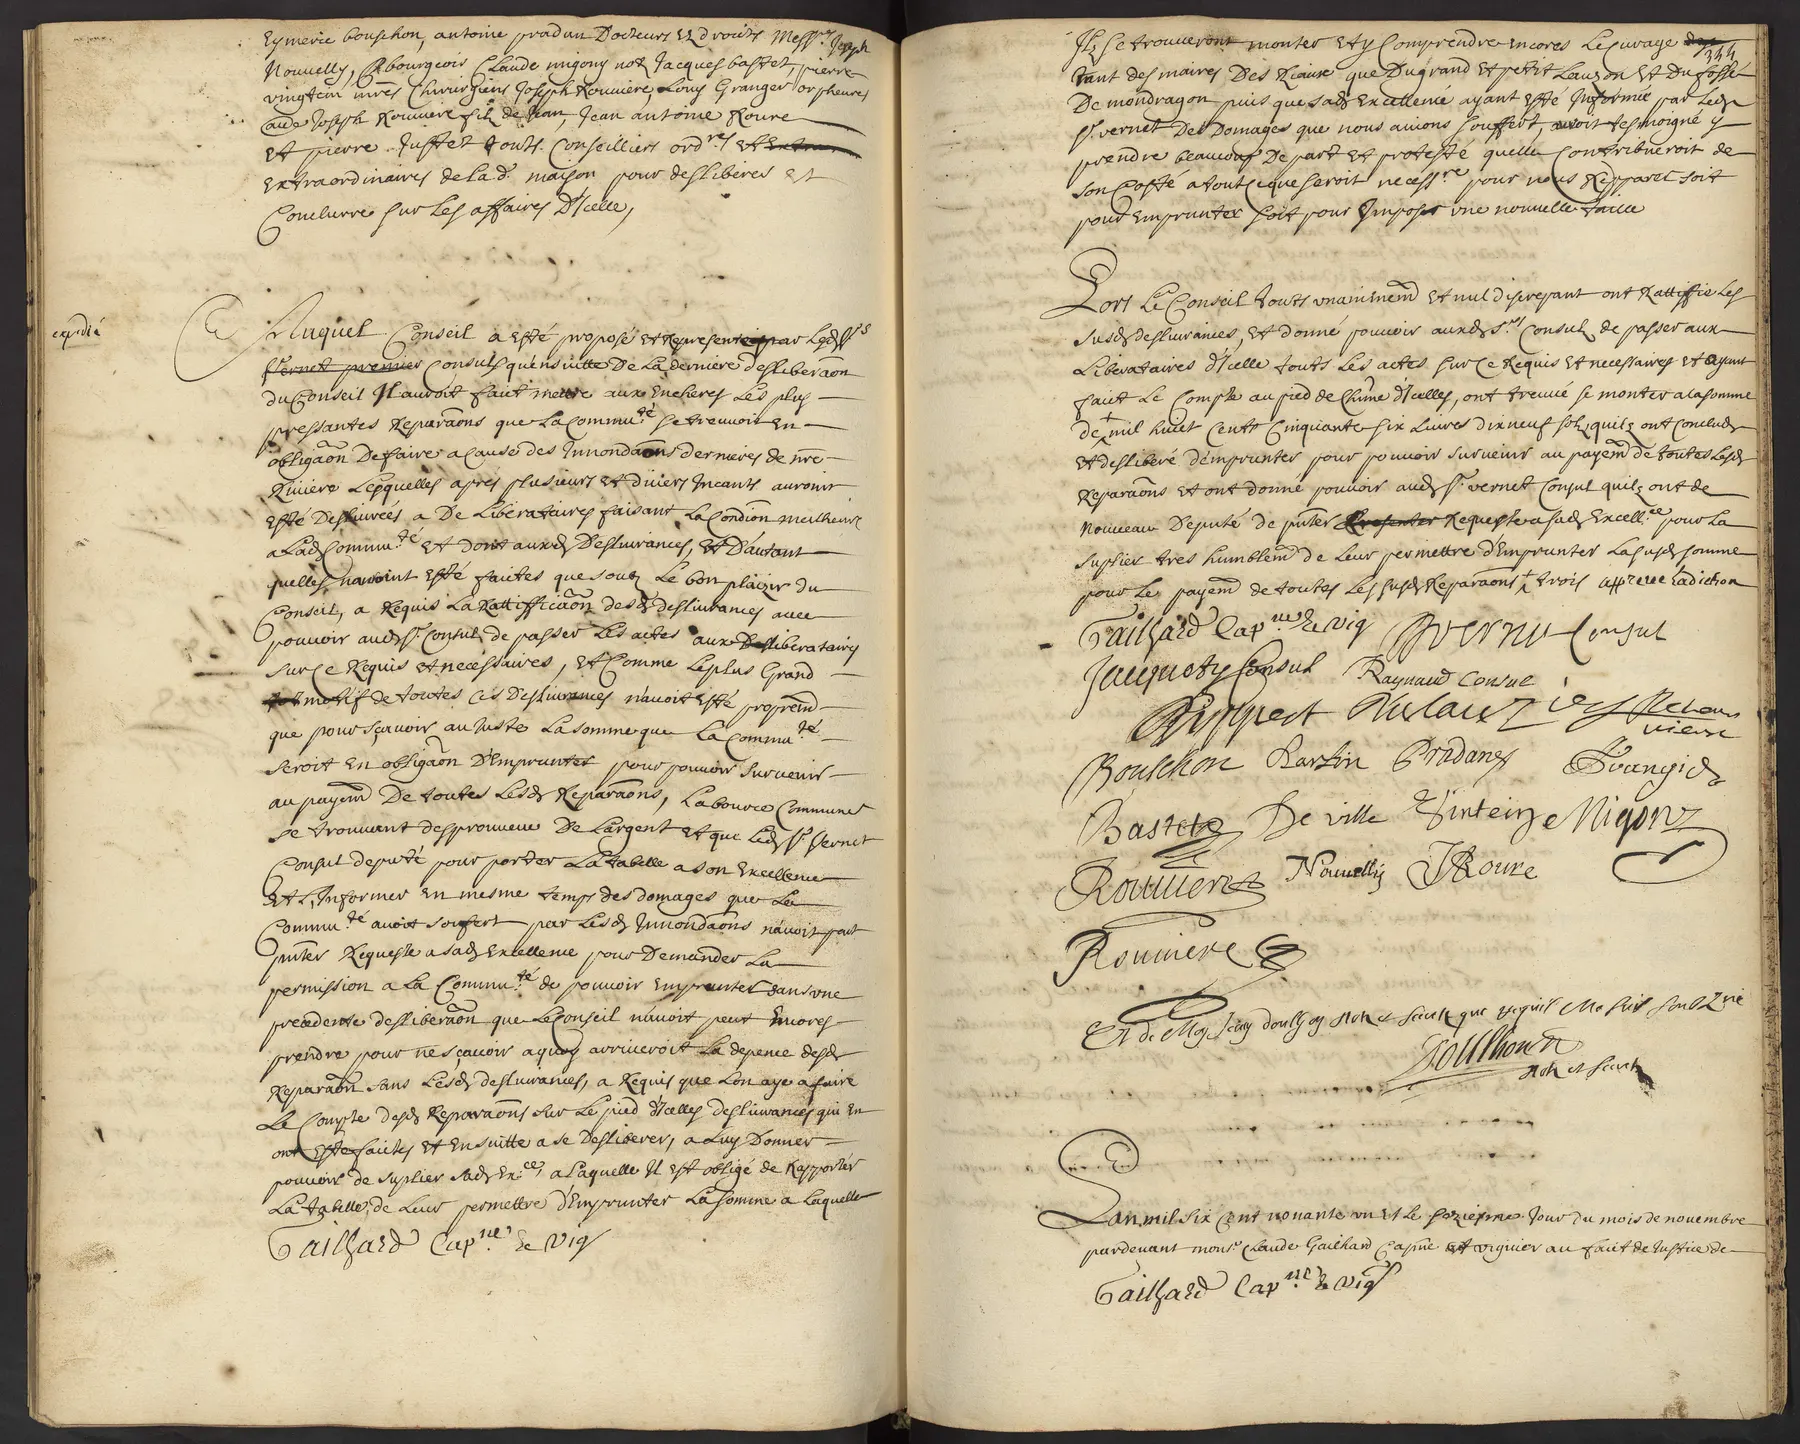 Eymeric bouschon, antoine pradan Docteurs Ez droits Mess.rs Joseph
Nouvelly, bourgeois Claude migony not.e Jacques bastet, pierre
vingtein mres Chirurgiens Joseph Rouviere, Louy Granger orpheures
Joseph Rouviere filz de Jean, Jean antoine Roure
Et pierre Juffet touts Conseilliers ord.res et
Extraordinaires de la d. maison pour deslibérer Et
Conclurre sur Les affaires D'Icelle,
expedié
Auquel Conseil a esté proposé et representé par Led. S.r
Vernet premier Consul qu'ensuitte De La derniere deslibera͠on
du Conseil Il auroit faict mettre aux Encheres Les plus
pressantes Repara͠ons que La Commu.té se treuvoit En
obliga͠on De faire a Cause des Innonda͠ons dernieres de n͠re
Riviere Lesquelles apres plusieurs et divers Incants auroint
esté Deslivrées a De Liberataires faisant La Condi͠on meilheure
a Lad. Commu.té et dont auxd. Deslivrances, Et D'autant
quelles n'avoint Esté faites que soubz Le bon plaizir du
Conseil, a Requis La Rattiffica͠on desd. deslivrances avec
pouvoir aud. S.r Consul de passer Les actes aux Desliberataires
sur ce Requis et necessaires, et Comme Le plus Grand
motif de toutes Ces Deslivrances n'avoit esté proprem͠t
que pour sçavoir au Juste La somme que La Commu.té
seroit En obliga͠on D'Emprunter pour pouvoir survenir
au payem͠t De toutes Lesd. Repara͠ons, La bource Commune
se trouvant despourveue De L'argent et que Led. S.r Vernet
Consul deputé pour porter La tabelle a son Excellence
et L'Informer En mesme temps des domages que La
Commu.té avoit soufert par Lesd. Innonda͠ons n'avoit peut
pn͠ter Requeste a sad. Excellence pour Demander La
permission a La Commu.té de pouvoir Emprunter dans une
precedente deslibera͠on que Le Conseil n'avoit peut Encores
prendre pour ne sçavoir a quoy arriveroit La depence desd.
Repara͠on sans Lesd. deslivrances, a Requis que L'on aye a faire
Le Compte desd. Repara͠ons sur Le pied d'Icelles deslivrances qui En
ont esté faites et Ensuitte a se Desliberer, a Luy Donner
pouvoir de suplier sad. Ex.ce, a Laquelle Il est obligé de Rapporter
La tabelle, de Leur permettre d'Emprunter La somme a Laquelle
Gailhard Cap.ne & Vig.
344
Ils se trouveront monter et y Comprendre encores Le Curage
tant des maires Des Rieaux que Du grand et petit Lauzon et Du fossé
De mondragon puis que sad. Excellence ayant esté Informée par Led.
S.r vernet Des Domages que nous avions souffert, avoit tesmoigné y
prendre beaucoup De part et protesté quelle Contribueroit de
son Costé a tout ce que seroit necess.re pour nous Repparer soit
pour Emprunter soit pour Imposer une nouvelle taille
Lors Le Conseil touts unanimem͠t et nul discrepant ont Rattiffié Les
susd. deslivrances, et donné pouvoir auxd. S.rs Consulz de passer aux
Liberataires d'Icelle touts Les actes sur ce Requis et necessaires et ayant
faict Le Compte au pied de Ch͠une d'Icelles, ont treuvé se monter a la somme
de + mil huict Cents Cinquante six Livres dixneuf solz quilz ont Conclud
et deslibéré d'emprunter pour pouvoir survenir au payem͠t de toutes Lesd.
Repara͠ons et ont donné pouvoir aud. S.r vernet Consul quilz ont de
nouveau Deputé de pn͠ter Requeste a sad. Excell.ce pour La
suplier tres humblem͠t de Leur permettre d'Emprunter La susd. somme
pour Le payem͠t de toutes Les susd. Repara͠ons + trois apreuve L'adiction
Gailhard Cap.ne & Vig. Vernet Consul
Jacquety Consul Raynaud Consul
Bouschon Martin Pradanes
Bastet De ville Vintein Migony
Rouviere Nouvelly JARoure
Rouviere
L'an mil six Cent nonante un et Le seziesme Jour du mois de novembre
pardevant mons.r Claude Gailhard Cap͠ne et viguier au faict de Justice de
Gailhard Cap.ne & Vig.